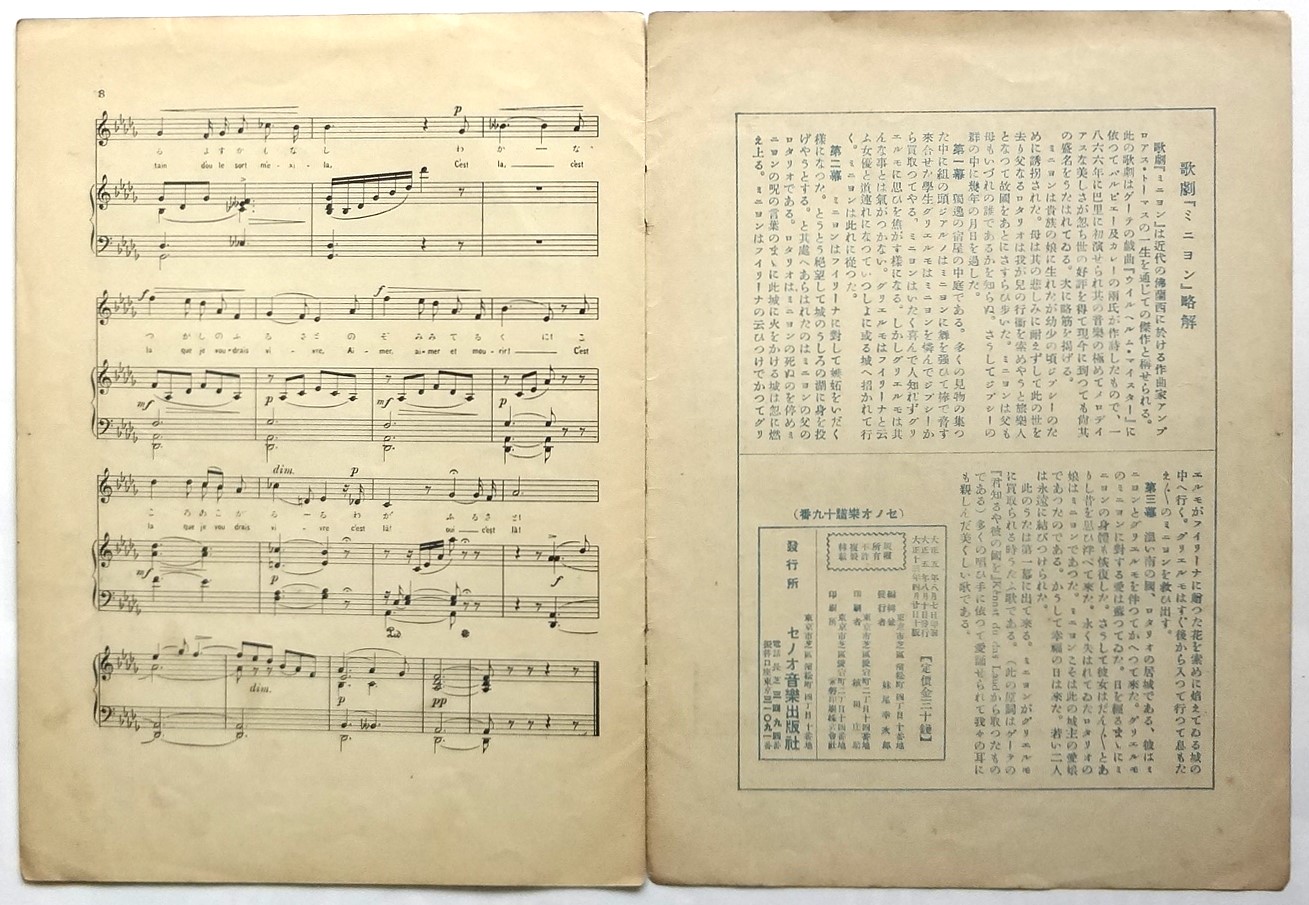 8
p
る よ す が も な し わ か ー な
tain d'où le sort m'e - xi - la, C'est là, c'est
f
f
つ が し の ふ る さ と の ぞ み み て る く に! こ
là que je vou-drais vi - vre, Ai- mer, ai-mer et mou-rir! C'est
mf
p
mf
p
dim.
p
こ ろ あ こ が る ー る わ が ふ る さ と!
là que je vou drais vi - vre c'est là! oui c'est là!
mf
p
f
Ped.
dim.
p
pp
歌劇『ミニヨン』略解
歌劇『ミニヨン』は近代の佛蘭西に於ける作曲家アンブ
ロアス・トーマスの一生を通じての傑作と稱せられる。
此の歌劇はゲーテの戯曲『ウイルヘルム・マイスター』に
依つてバルビエー及カレーの兩氏が作詩したもので、一
八六六年に巴里に初演せられ其の音樂の極めてメロデイ
アスな美しさが忽ち世の好評を得て現今に到つても尚其
の盛名をうたはれてゐる。次に略筋を揭げる。
ミニヨンは貴族の娘に生れたが幼少の頃ジプシーのた
めに誘拐された。母は其の悲しみに耐えずして此の世を
去り父なるロタリオは我が兒の行衞を索めやうと旅樂人
となつて故國をあとにさすらひ歩いた。ミニヨンは父も
母もいづれの誰であるかを知らぬ。さうしてジプシーの
群の中に幾年の月日を過した。
第一幕 獨逸の宿屋の中庭である。多くの見物の集つ
た中に組の頭ジアルノはミニヨンに舞を强ひて擲で脅す
來合せた學生グリエルモはミニヨンを憐んでジプシーか
ら買取つてやる、ミニヨンはいたく喜んで人知れずグリ
エルモに思ひを焦がす樣になる。しかしグリエルモは其
んな事とは氣がつかない。グリエルモはフイリーナと云
ふ女優と道連れになつていつしよに或る城へ招かれて行
く。ミニヨンは此れに從つた。
第二幕 ミニヨンはフイリーナに對して嫉妬をいだく
樣になつた。とうとう絕望して城のうしろの湖に身を投
げやうとする。と其處へあらはれたのはミニヨンの父の
ロタリオである。ロタリオはミニヨンの死ぬのを停めミ
ニヨンの呪の言葉のまゝに此城に火をかける城は忽に燃
え上る。ミニヨンはフイリーナの云ひつけでかつてグリ
エルモがフイリーナに贈つた花を索めに焰えてゐる城の
中へ行く。グリエルモはすぐ後から入つて行つて息もた
え〲のミニヨンを救ひ出す。
第三幕 溫い南の國、ロタリオの居城である、彼はミ
ニヨンとグリエルモを伴つてかへつて來た。グリエルモ
のミニヨンに對する愛は蘇つてゐた。日を經るまゝにミ
ニヨンの身體も恢復した。さうして彼女はだん〱とあ
りし昔を思ひ浮べて來た。永く失はれてゐたロタリオの
娘はミニヨンであつた。ミニヨンこそは此の城主の愛娘
であつたのである。かうして幸福の日は來た。若い二人
は永遠に結びつけられた。
此のうたは第一幕に出て來る。ミニヨンがグリエルモ
に買取られる時うたふ歌である。(此の原詞はゲーテの
『君知るや彼の國を』Kennst du das Landから取つたもの
である)多くの唱ひ手に依つて愛誦せられて我々の耳に
も親しんだ美くしい歌である。
(セノオ樂譜十九番)
大正五年八月七日印刷
大正五年八月十日發行
大正十三年四月廿日十版
【定價金三十錢】
版權所有
不許複製轉載
東京市芝區濱松町四丁目十番地
編輯兼發行者 妹尾幸次郎
東京市芝區愛宕町二丁目十四番地
印刷者
東京市芝區愛宕町二丁目十四番地
印刷所
發行所
東京市芝區濱松町四丁目十番地
セノオ音樂出版社
電話長芝三四九四番
振替口座東京三一〇九一番